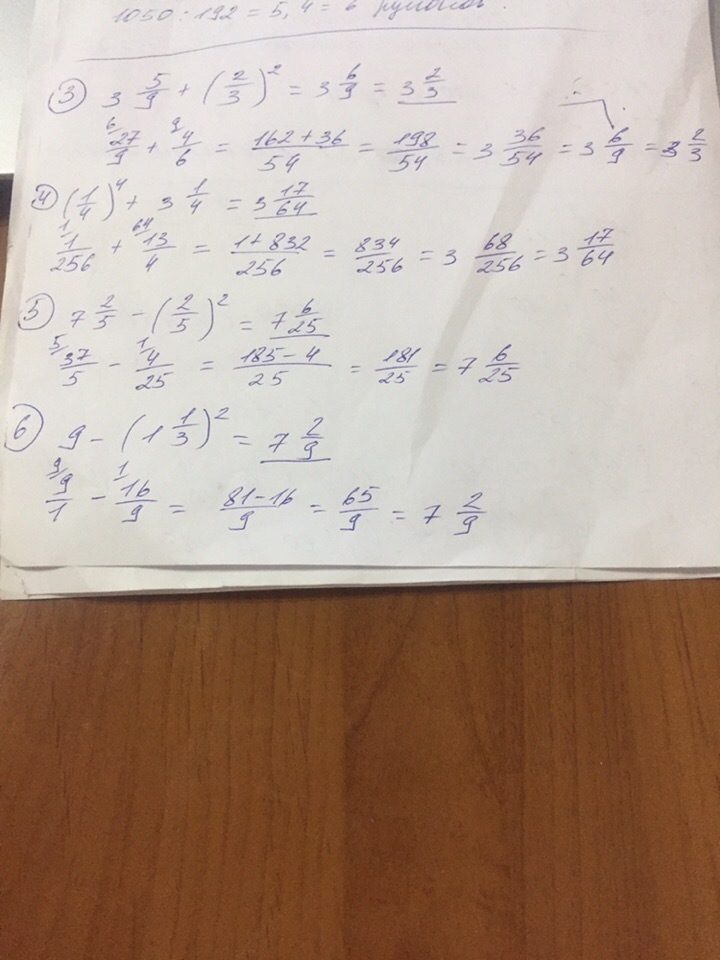 1050 : 192 = 5,4 = 6 рулонов.
③ 3 5/9 + (2/3)² = 3 6/9 = 3 2/3
6/ 27/9 + 9/ 4/6 = (162 + 36)/54 = 198/54 = 3 36/54 = 3 6/9 = 3 2/3
④ (1/4)⁴ + 3 1/4 = 3 17/64
1/ 1/256 + 64/ 13/4 = (1 + 832)/256 = 834/256 = 3 68/256 = 3 17/64
⑤ 7 2/5 - (2/5)² = 7 6/25
5/ 37/5 - 1/ 4/25 = (185 - 4)/25 = 181/25 = 7 6/25
⑥ 9 - (1 1/3)² = 7 2/9
9/ 9/1 - 1/ 16/9 = (81 - 16)/9 = 65/9 = 7 2/9